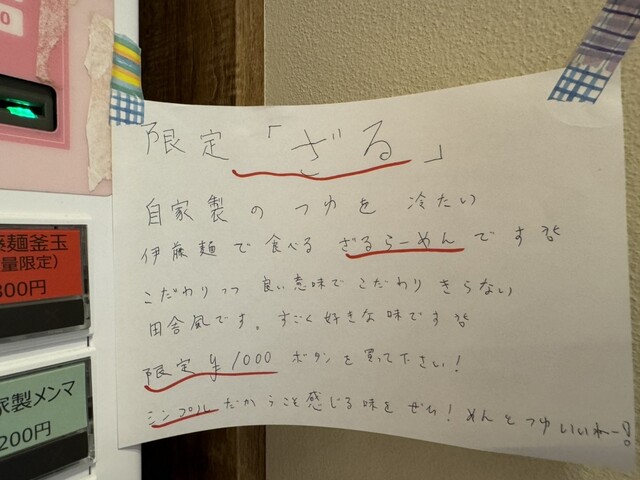 限定「ざる」
自家製のつゆを冷たい
伊藤麺で食べるざるらーめんです
こだわりつつ良い意味でこだわりきらない
田舎風です。すごく好きな味です
限定￥1000ボタンを買って下さい!
シンプルだからこそ感じる味をぜひ! めんとつゆいいねー!
麺釜玉
量限定)
800円
家製メンマ
200円